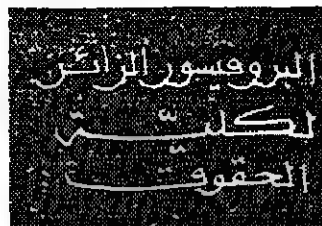 البروفيسور الزائر
لكليّة
الحقوق